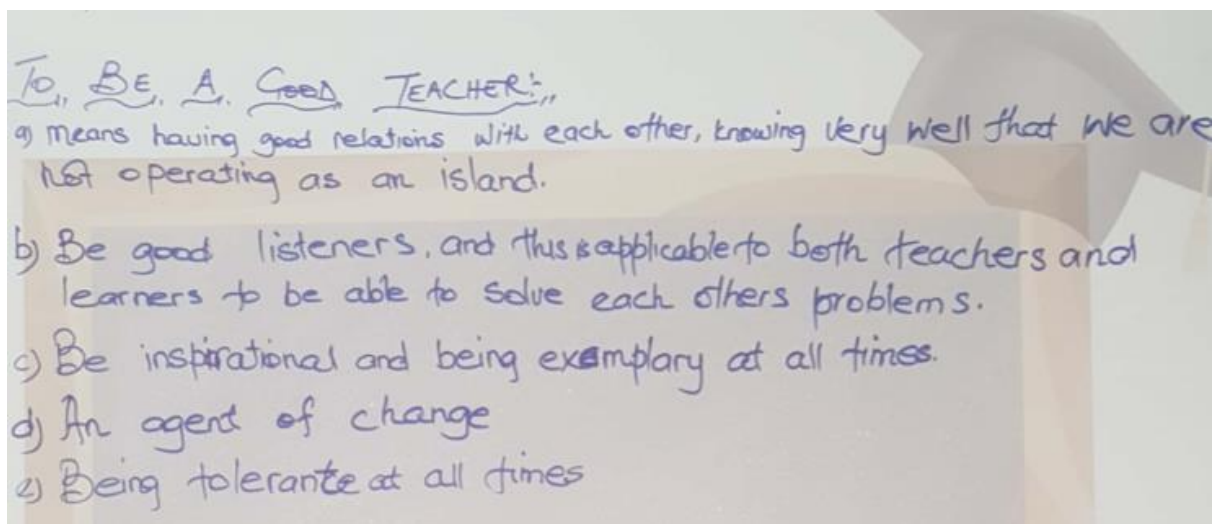 To BE A GOOD TEACHER:-
a) means having good relations with each other, knowing very well that we are
not operating as an island.
b) Be good listeners, and thus is applicable to both teachers and
learners to be able to solve each others problems.
c) Be inspirational and being exemplary at all times.
d) An agent of change
e) Being tolerante at all times